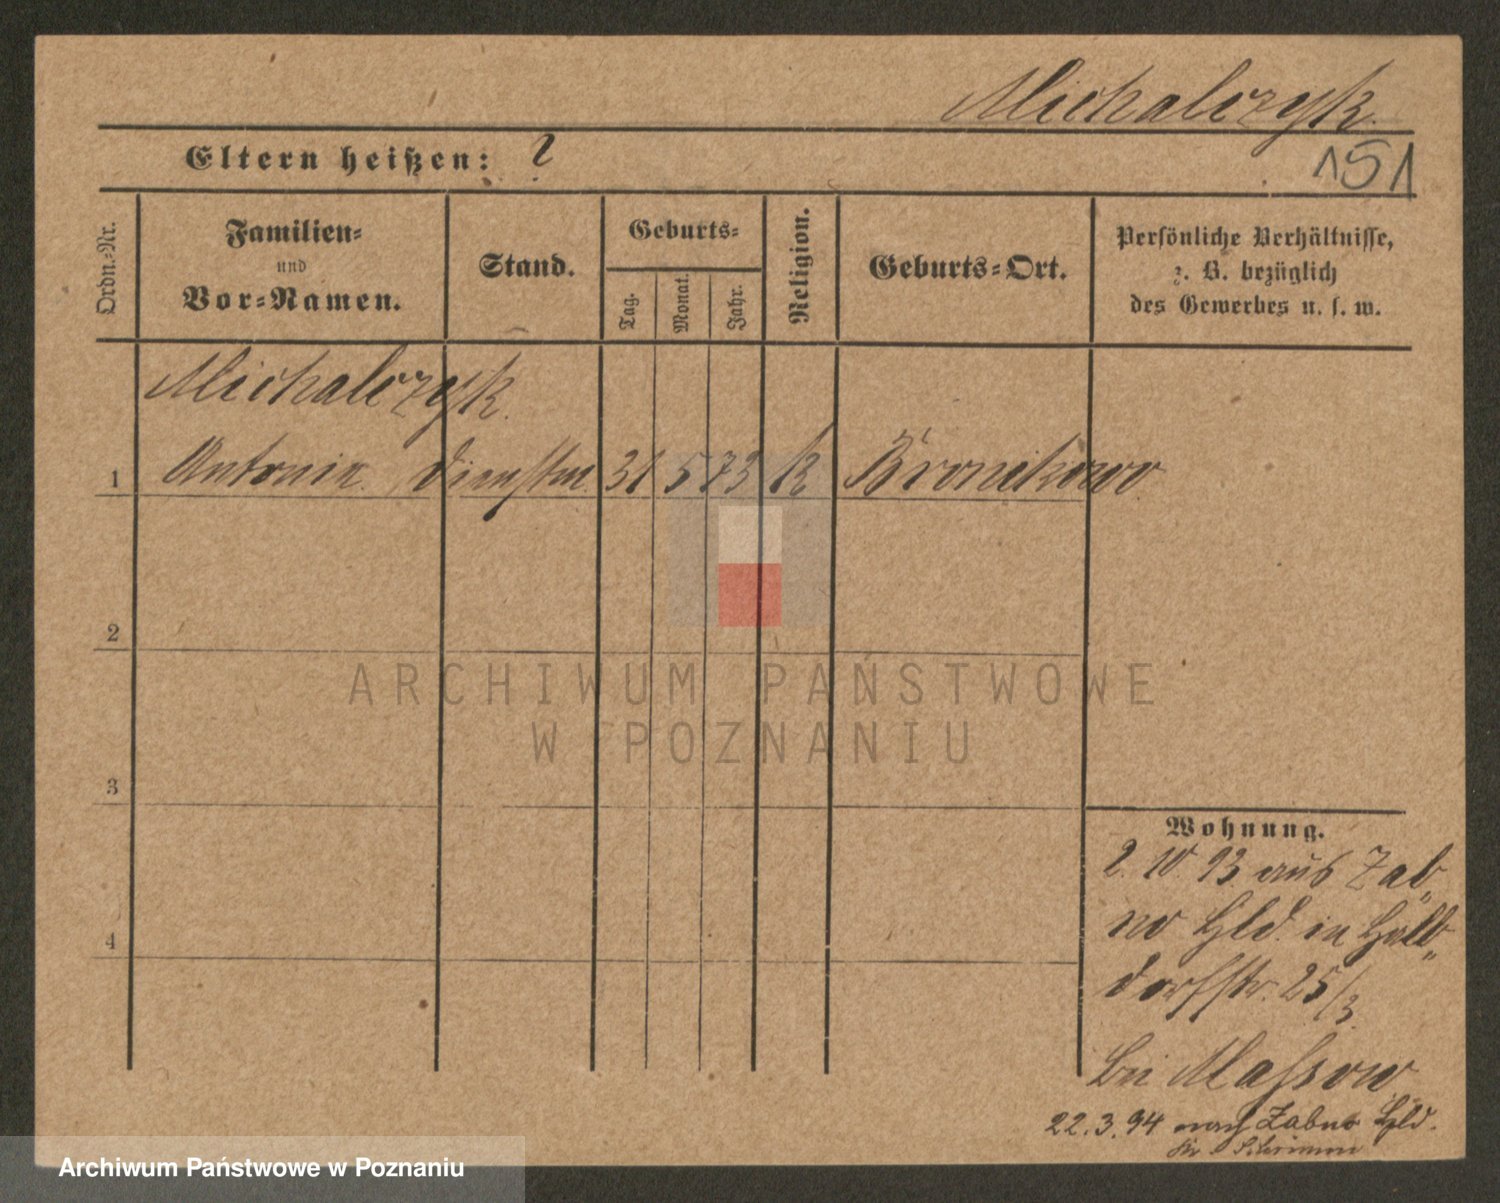 Michalczyk.
Eltern heißen: ?
151
Ordn.-Nr.
Familien-
und
Vor-Namen.
Stand.
Geburts-
Tag.
Monat.
Jahr.
Religion.
Geburts-Ort.
Persönliche Verhältnisse,
z. B. bezüglich
des Gewerbes u. s. w.
Michalczyk.
1 Antonie. Dienstm. 31 5 73 k Bronikowo
2
3
4
Wohnung.
2. 10. 93. aus Zab„
no Hld. in Halb„
dorfstr. 25/3.
bei Massow
22.3.94 nach Zabno Hld.
Kr. Schrimm
ARCHIWUM PAŃSTWOWE
W POZNANIU
Archiwum Państwowe w Poznaniu